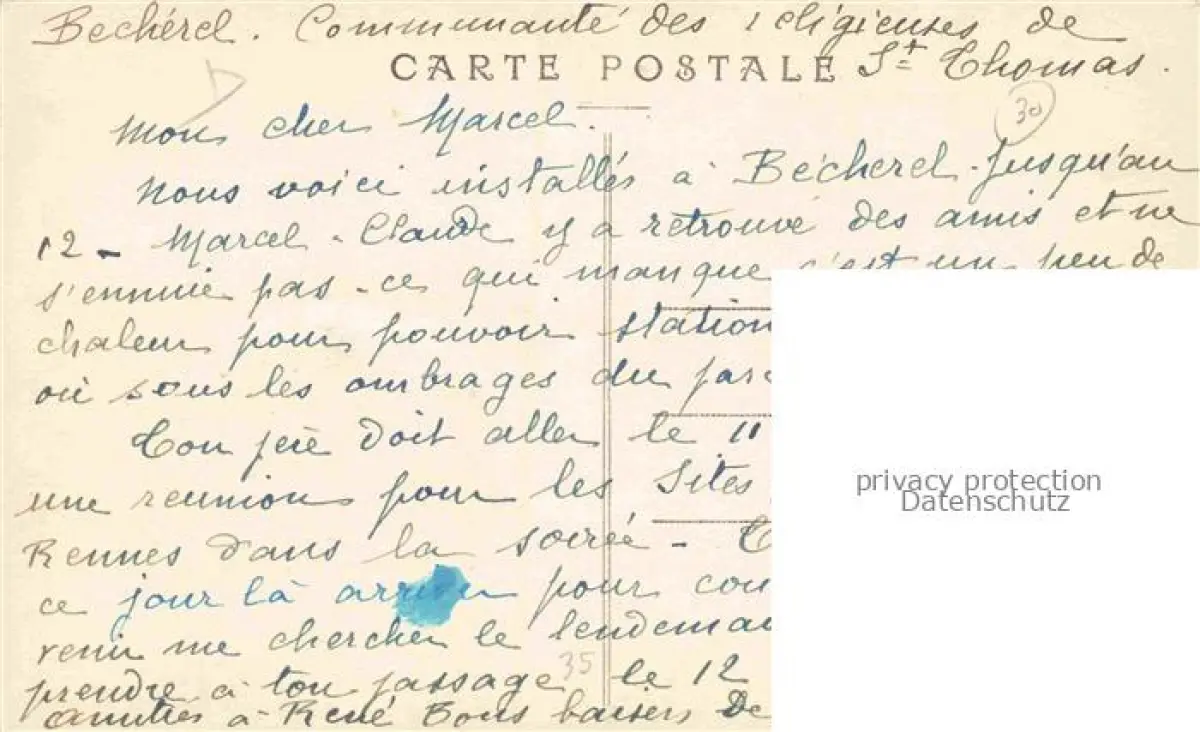 Bécherel. Communauté des religieuses de
CARTE POSTALE St Thomas.
30
Mon cher Marcel.
nous voici installés à Bécherel. jusqu'au
12 - Marcel - Claude y a retrouvé des amis et ne
s'ennuie pas - ce qui manque c'est un peu de
chaleur pour pouvoir station
où sous les ombrages du parc
Ton père doit aller le 11
une reunion pour les Sites
Rennes dans la soirée -
ce jour là arriver pour
venir me chercher le lendemain
prendre à ton passage le 12
35
amitiés à René Bons baisers De
privacy protection
Datenschutz